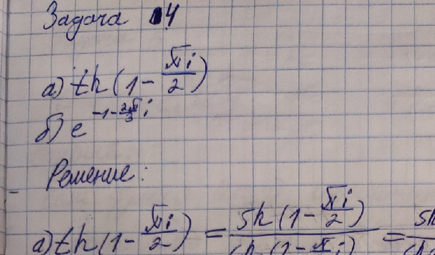 Задача 4
а) th(1 - πi/2)
б) e^(-1-2π/3 i)
Решение:
а) th(1 - πi/2) = sh(1 - πi/2) / ch(1 - πi) = sh